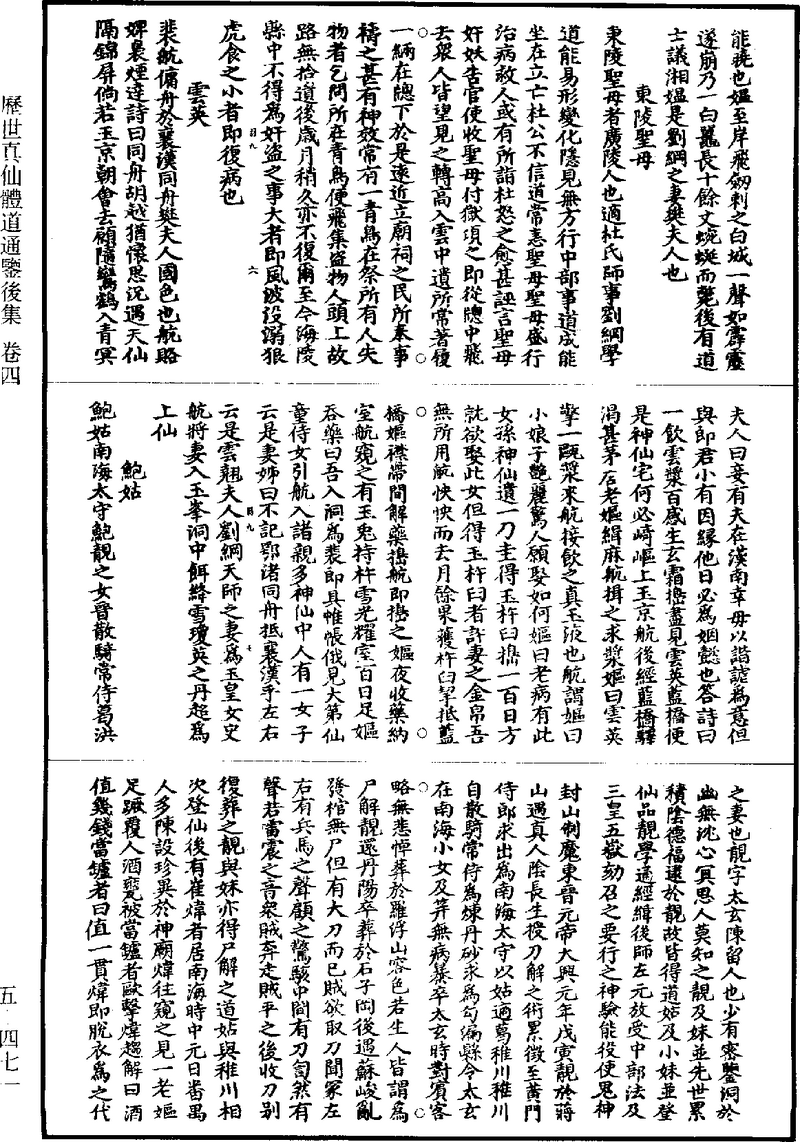 能曉也媼至岸飛劒刺之白城一聲如霹靂
遂崩乃一白鼉長十餘丈蜿蜒而斃後有道
士議湘媼是劉綱之妻樊夫人也
東陵聖母
東陵聖母者廣陵人也適杜氏師事劉綱學
道能易形變化隱見無方行中部事道成能
坐在立亡杜公不信道常恚聖母聖母盛行
治病救人或有所詣杜怒之愈甚誣言聖母
奸妖告官便收聖母付獄項之即從牕中飛
去衆人皆望見之轉高入雲中遺所常著履
一緉在牕下於是遠近立廟祠之民所奉事
禱之甚有神效常有一青鳥在祭所有人失
物者乞問所在青鳥便飛集盜物人頭上故
路無拾道後歲月稍久亦不復爾至今海陵
縣中不得爲奸盜之事大者即風波没溺狼
虎食之小者即復病也
雲英
裴航傭舟於襄漢同舟樊夫人國色也航賂
婢裊煙達詩曰同舟胡越猶懷思況遇天仙
隔錦屏倘若玉京朝會去願隨鸞鶴入青冥
夫人曰妾有夫在漢南幸毋以諧謔爲意但
與郎君小有因緣他日必爲姻懿也答詩曰
一飲雲漿百感生玄霜擣盡見雲英藍橋便
是神仙宅何必崎嶇上玉京航後經藍橋驛
渴甚茅店老嫗緝麻航揖之求漿嫗曰雲英
擎一甌漿來航接飲之真玉液也航謂嫗曰
小娘子艶麗驚人願娶如何嫗曰老病有此
女孫神仙遺一刀圭得玉杵臼擣一百日方
就欲娶此女但得玉杵臼者許妻之金帛吾
無所用航怏怏而去月餘果獲杵臼挈抵藍
橋嫗襟帶間解藥擣航即擣之嫗夜收藥納
室航窺之有玉兎持杵雪光耀室百日足嫗
吞藥曰吾入洞爲裴郎具帷帳俄見大第仙
童侍女引航入諸親多神仙中人有一女子
云是妻姊曰不記鄂渚同舟抵襄漢乎左右
云是雲翹夫人劉綱天師之妻爲玉皇女史
航將妻入玉峯洞中餌絳雪瓊英之丹超爲
上仙
鮑姑
鮑姑南海太守鮑靚之女晉散騎常侍葛洪
之妻也靚字太玄陳留人也少有密鑒洞於
幽無沈心冥思人莫知之靚及妹並先世累
積陰德福逮於靚故皆得道姑及小妹並登
仙品靚學通經緯後師左元放受中部法及
三皇五嶽劾召之要行之神驗能役使鬼神
封山制魔東晉元帝大興元年戊寅靚於蔣
山遇真人陰長生授刀解之術累徵至黃門
侍郎求出爲南海太守以姑適葛稚川稚川
自散騎常侍爲煉丹砂求爲勾漏縣令太玄
在南海小女及笄無病暴卒太玄時對賓客
略無悲悼葬於羅浮山容色若生人皆謂爲
尸解靚還丹陽卒葬於石子岡後遇蘇峻亂
發棺無尸但有大刀而已賊欲取刀聞冢左
右有兵馬之聲顧之驚駭中間有刀訇然有
聲若雷震之音衆賊奔走賊平之後收刀别
復葬之靚與妹亦得尸解之道姑與稚川相
次登仙後有崔煒者居南海時中元日番禺
人多陳設珍異於神廟煒往窺之見一老嫗
足蹶覆人酒甕被當鑪者毆擊煒趨解曰酒
值幾錢當鑪者曰值一貫煒即脫衣爲之代
歷世真仙體道通鑒後集 卷四
五 四七一